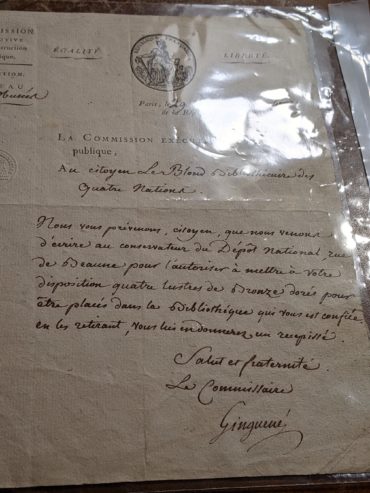 MISSION
ÉGALITÉ
LIBERTÉ.
Paris, le 19
de la Ré
LA COMMISSION EXÉCU
publique,
Au citoyen Le Blond Bibliothécaire des
Quatre Nations.
Nous vous prévenons, citoyen, que nous venons
d'écrire au conservateur du Dépôt National, rue
de Beaune pour l'autoriser à mettre à votre
disposition quatre lustres de Bronze dorés pour
être placés dans la Bibliothéque qui vous est confiée
en les retirant, vous lui en donnerez un recepissé.
Salut et fraternité.
Le Commissaire
Ginguené